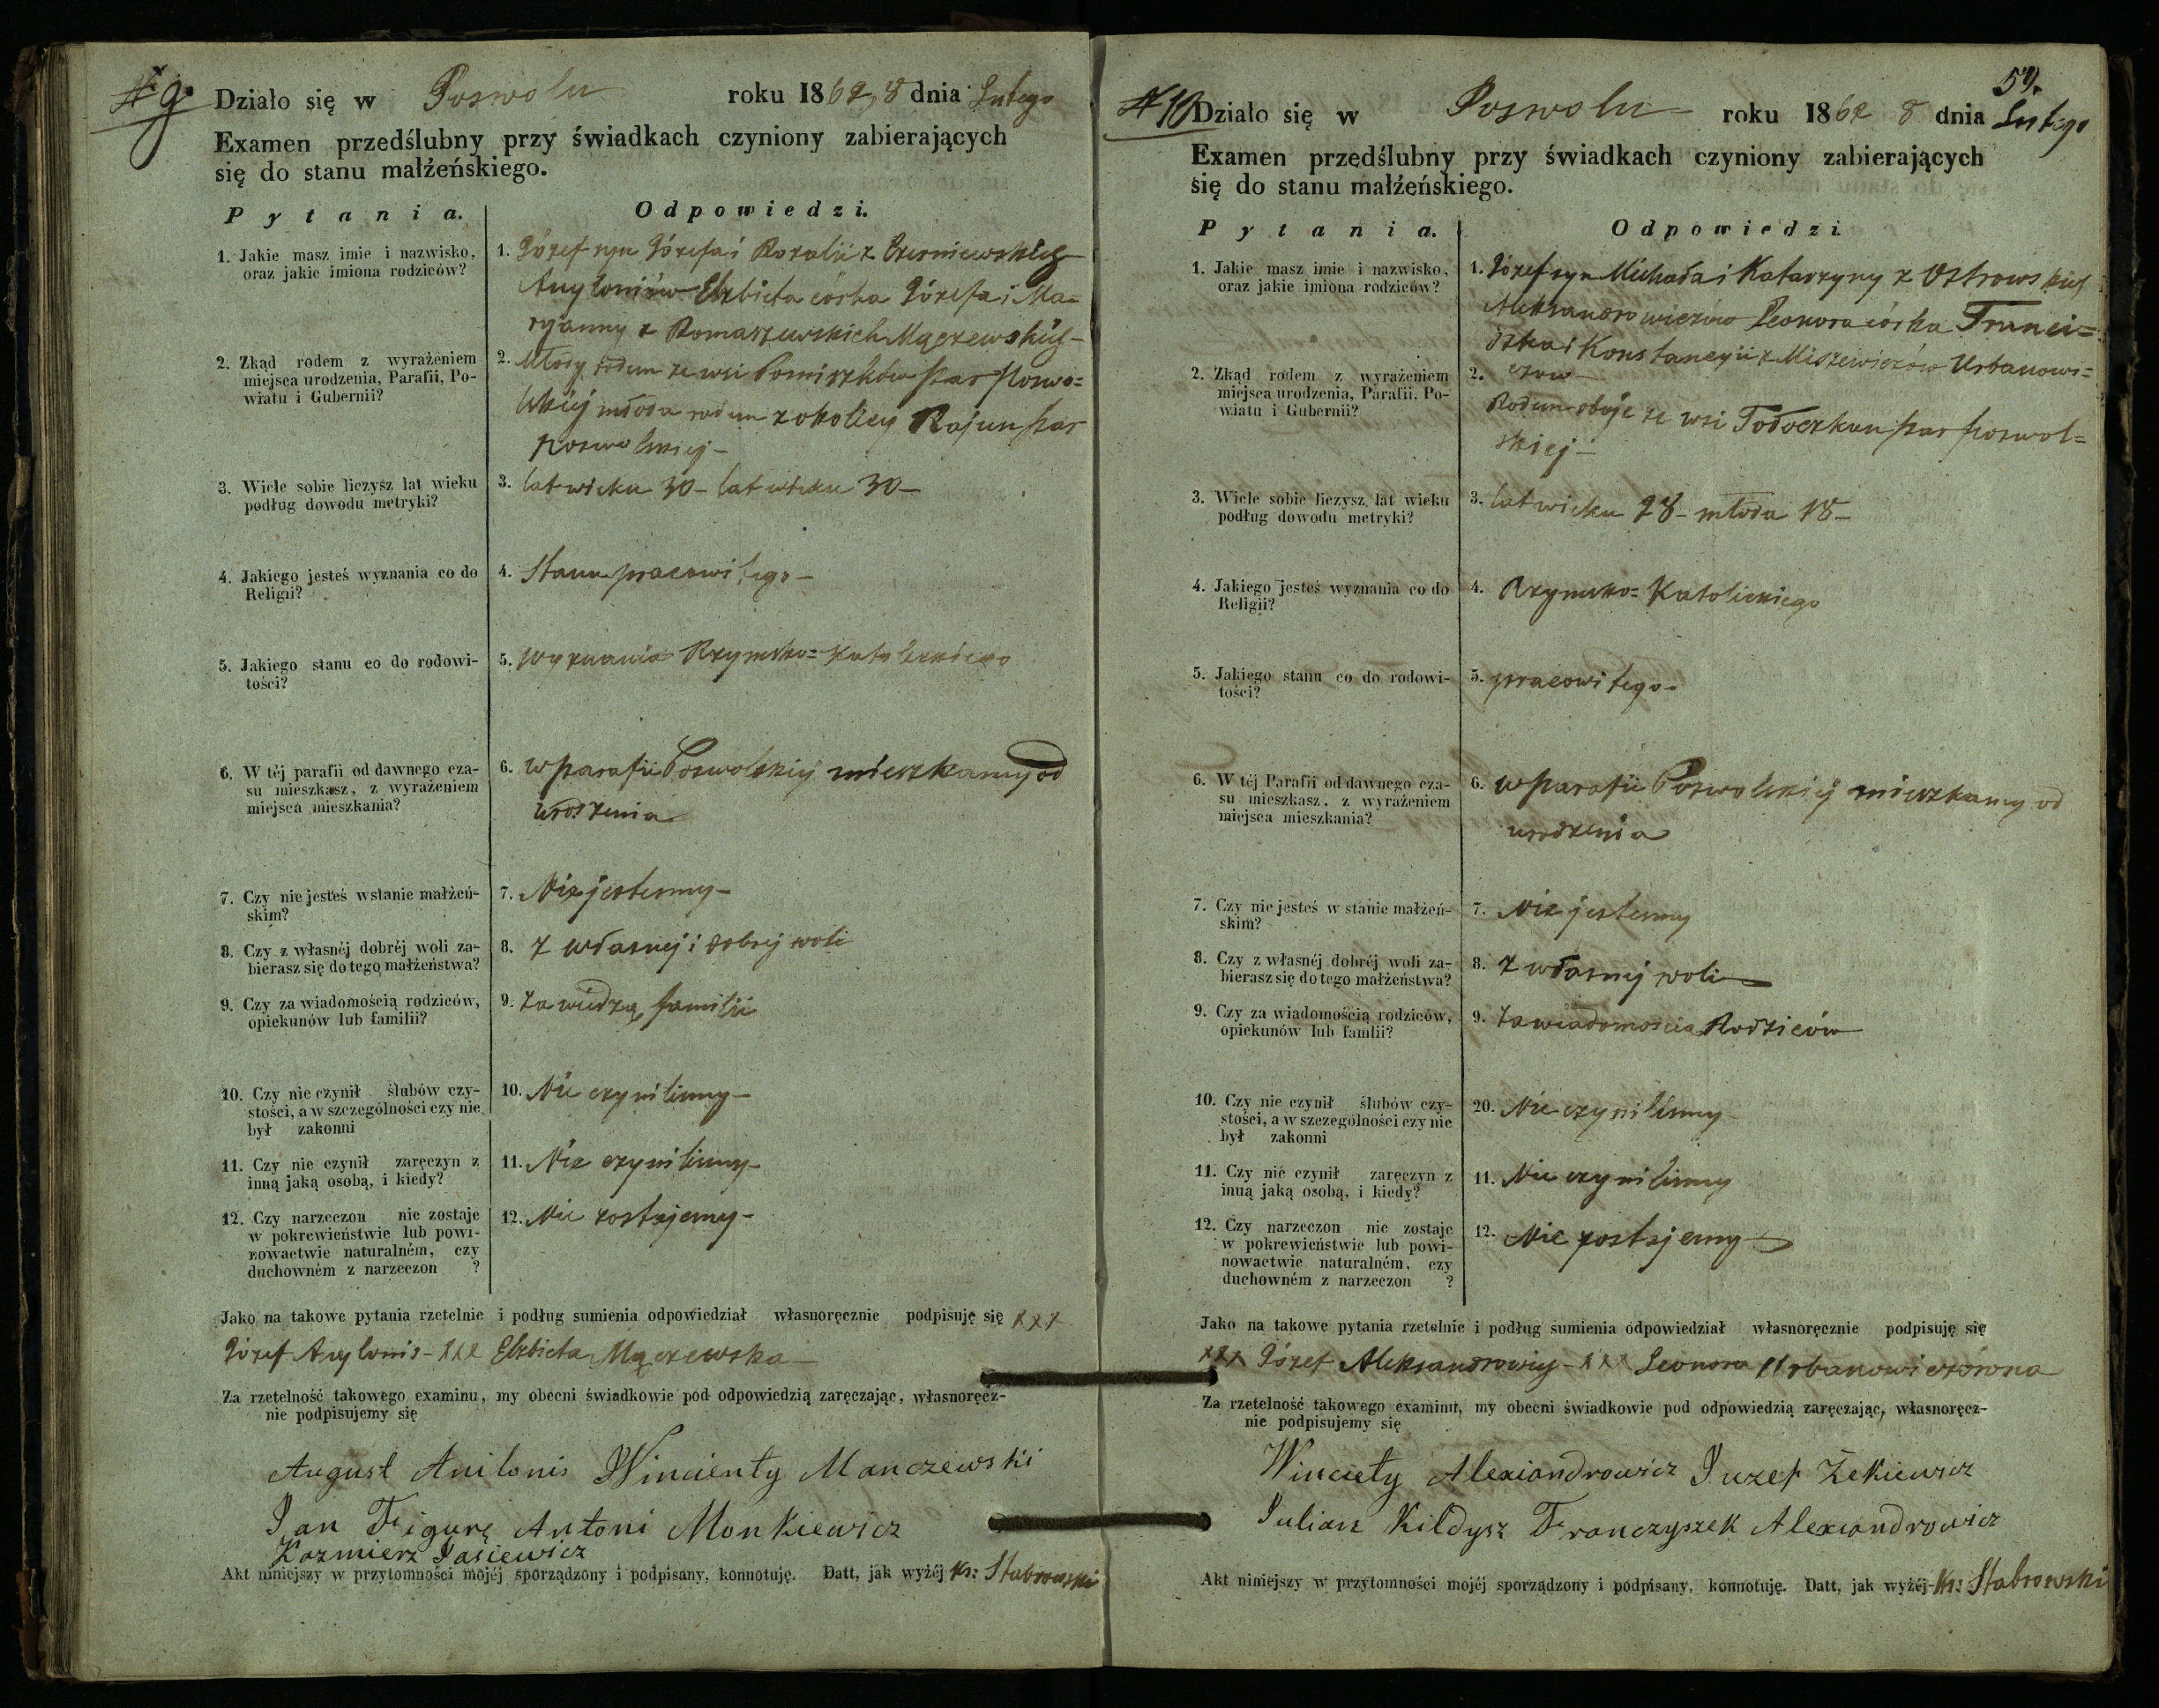 № 9.
Działo się w Poswolu roku 1862, 8 dnia Lutego
Examen przedślubny przy świadkach czyniony zabierających
się do stanu małżeńskiego.
Pytania.
Odpowiedzi.
1. Jakie masz imie i nazwisko,
oraz jakie imiona rodziców?
1. Józef syn Józefa i Rozalii z
Elżbieta córka Józefa i Ma=
ryanny z Romaszewskich Mączewskich
2. Zkąd rodem z wyrażeniem
miejsca urodzenia, Parafii, Po-
wiatu i Gubernii?
2. Młody rodem ze wsi par Poswo=
lskiej młoda rodem z okolicy Rajun par
Poswolskiej –
3. Wiele sobie liczysz lat wieku
podług dowodu metryki?
3. lat wieku 30 – lat wieku 30 –
4. Jakiego jesteś wyznania co do
Religii?
4. Stanu pracowitego –
5. Jakiego stanu co do rodowi-
tości?
5. Wyznania Rzymsko=Katolickiego
6. W téj parafii od dawnego cza-
su mieszkasz, z wyrażeniem
miejsca mieszkania?
6. w parafii Poswolskiej mieszkamy od
urodzenia
7. Czy nie jesteś w stanie małżeń-
skim?
7. Nie jestesmy –
8. Czy z własnéj dobréj woli za-
bierasz się do tego małżeństwa?
8. Z własnej i dobrej woli
9. Czy za wiadomością rodziców,
opiekunów lub familii?
9. Za wiedzą familii
10. Czy nie czynił ślubów czy-
stości, a w szczególności czy nie
był zakonni
10. Nie czynilismy –
11. Czy nie czynił zaręczyn z
inną jaką osobą, i kiedy?
11. Nie czynilismy –
12. Czy narzeczon nie zostaje
w pokrewieństwie lub powi-
nowactwie naturalném, czy
duchowném z narzeczon ?
12. Nie zostajemy –
Jako na takowe pytania rzetelnie i podług sumienia odpowiedział własnoręcznie podpisuję się xxx
Józef Anylonis – xxx Elżbieta Mączewska –
Za rzetelność takowego examinu, my obecni świadkowie pod odpowiedzią zaręczając, własnoręcz-
nie podpisujemy się
August Anilonis Wincienty Manczewski
Jan Figurę Antoni Monkiewicz
Kazmierz Jasiewicz
Akt niniejszy w przytomności mojéj sporządzony i podpisany, konnotuję. Datt, jak wyżéj Ks: Stabrowski
59.
№ 10
Działo się w Poswolu roku 1862 8 dnia Lutego
Examen przedślubny przy świadkach czyniony zabierających
się do stanu małżeńskiego.
Pytania.
Odpowiedzi
1. Jakie masz imie i nazwisko,
oraz jakie imiona rodziców?
1. Józef syn Michała i Katarzyny z Ostrowskich
Aleksandrowiczów Leonora córka Franci=
szka i Konstancyii z Urbanowi=
czow –
2. Zkąd rodem z wyrażeniem
miejsca urodzenia, Parafii, Po-
wiatu i Gubernii?
2. Rodem oboje ze wsi Tołoczkun par Poswol=
skiej –
3. Wiele sobie liczysz lat wieku
podług dowodu metryki?
3. lat wieku 28 – młoda 18 –
4. Jakiego jesteś wyznania co do
Religii?
4. Rzymsko=Katolickiego
5. Jakiego stanu co do rodowi-
tości?
5. pracowitego –
6. W téj Parafii od dawnego cza-
su mieszkasz, z wyrażeniem
miejsca mieszkania?
6. w parafii Poswolskiej mieszkamy od
urodzenia
7. Czy nie jesteś w stanie małżeń-
skim?
7. Nie jestesmy
8. Czy z własnéj dobréj woli za-
bierasz się do tego małżeństwa?
8. Z własnej woli
9. Czy za wiadomością rodziców,
opiekunów lub familii?
9. Za wiadomoscia Rodziców
10. Czy nie czynił ślubów czy-
stości, a w szczególności czy nie
był zakonni
20. Nie czynilismy –
11. Czy nie czynił zaręczyn z
inną jaką osobą, i kiedy?
11. Nie czynilismy
12. Czy narzeczon nie zostaje
w pokrewieństwie lub powi-
nowactwie naturalném, czy
duchowném z narzeczon ?
12. Nie zostajemy –
Jako na takowe pytania rzetelnie i podług sumienia odpowiedział własnoręcznie podpisuję się
xxx Józef Aleksandrowicz – xxx Leonora Urbanowiczówna
Za rzetelność takowego examinu, my obecni świadkowie pod odpowiedzią zaręczając, własnoręcz-
nie podpisujemy się
Winciety Alexiandrowicz Juzef Żekiewicz
Julian Kildysz Franczyszek Alexandrowicz
Akt niniejszy w przytomności mojéj sporządzony i podpisany, konnotuję. Datt, jak wyżéj Ks: Stabrowski